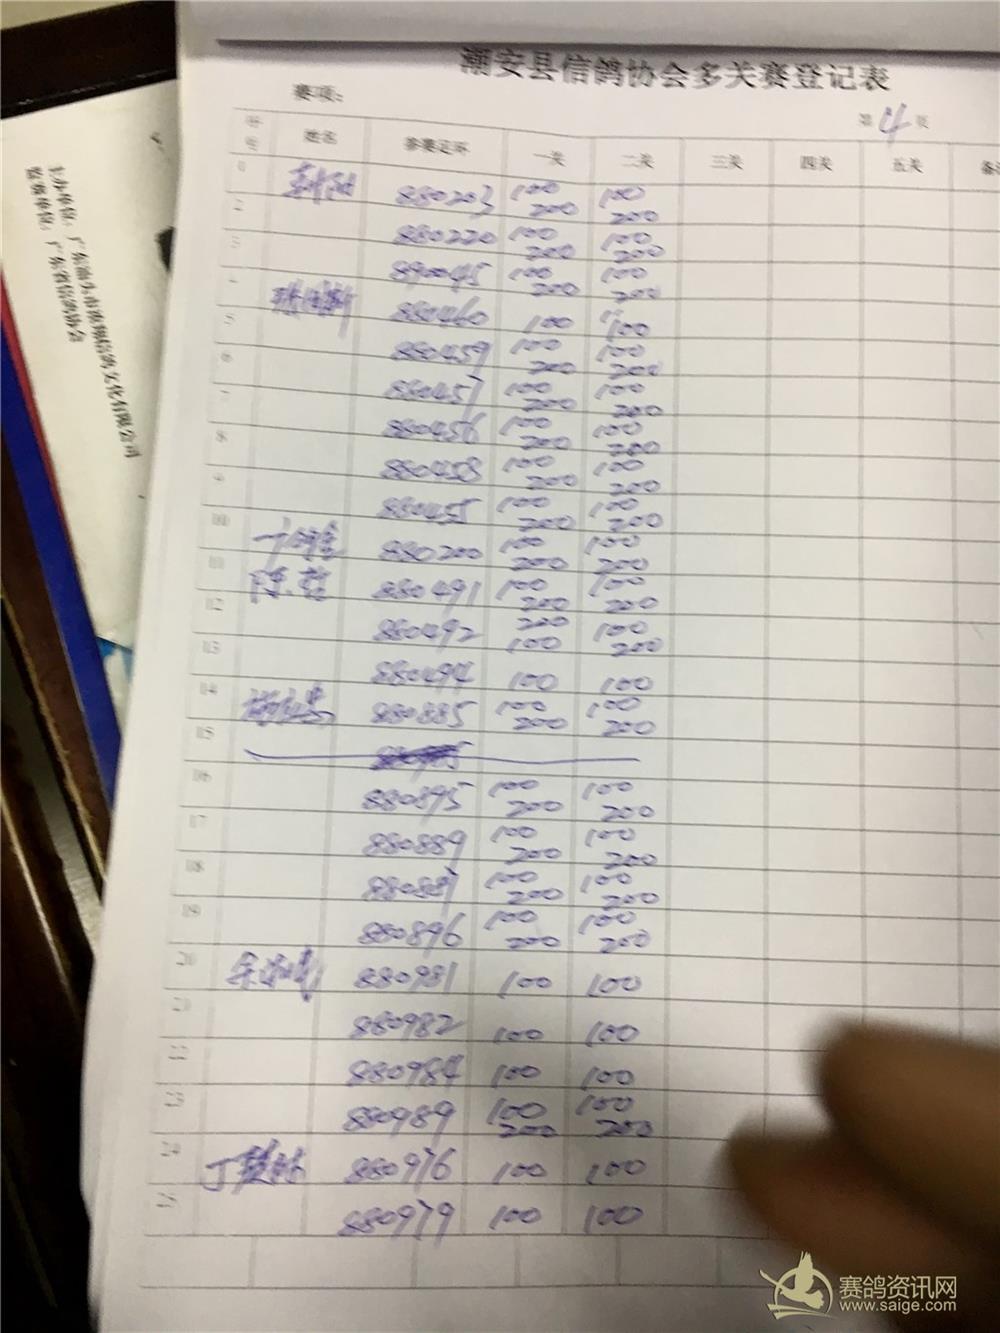 潮安县信鸽协会多关赛登记表
赛项：
第4页
姓名 参赛足环 一关 二关 三关 四关 五关
880203 100 200 100 200
2 880220 100 200 100 200
3 890045 100 200 100 200
880460 100 100
5 880459 100 200 100 200
6 880457 100 200 100 200
7 880456 100 200 100 200
8 880458 100 200 100 200
9 880455 100 200 100 200
10 880200 100 200 100 200
11 陈哲 880491 100 200 100 200
12 880492 200 100 100 200
13 880494 100 100
14 880885 100 200 100 200
15
16 880895 100 200 100 200
17 880889 100 200 100 200
18 880887 100 200 100 200
19 880896 100 200 100 200
20 880981 100 100
21 880982 100 100
22 880984 100 100
23 880989 100 200 100 200
24 880976 100 100
25 880979 100 100
主办单位：广东汕头市
监赛单位：广东省信鸽协会
赛鸽资讯网
www.saige.com